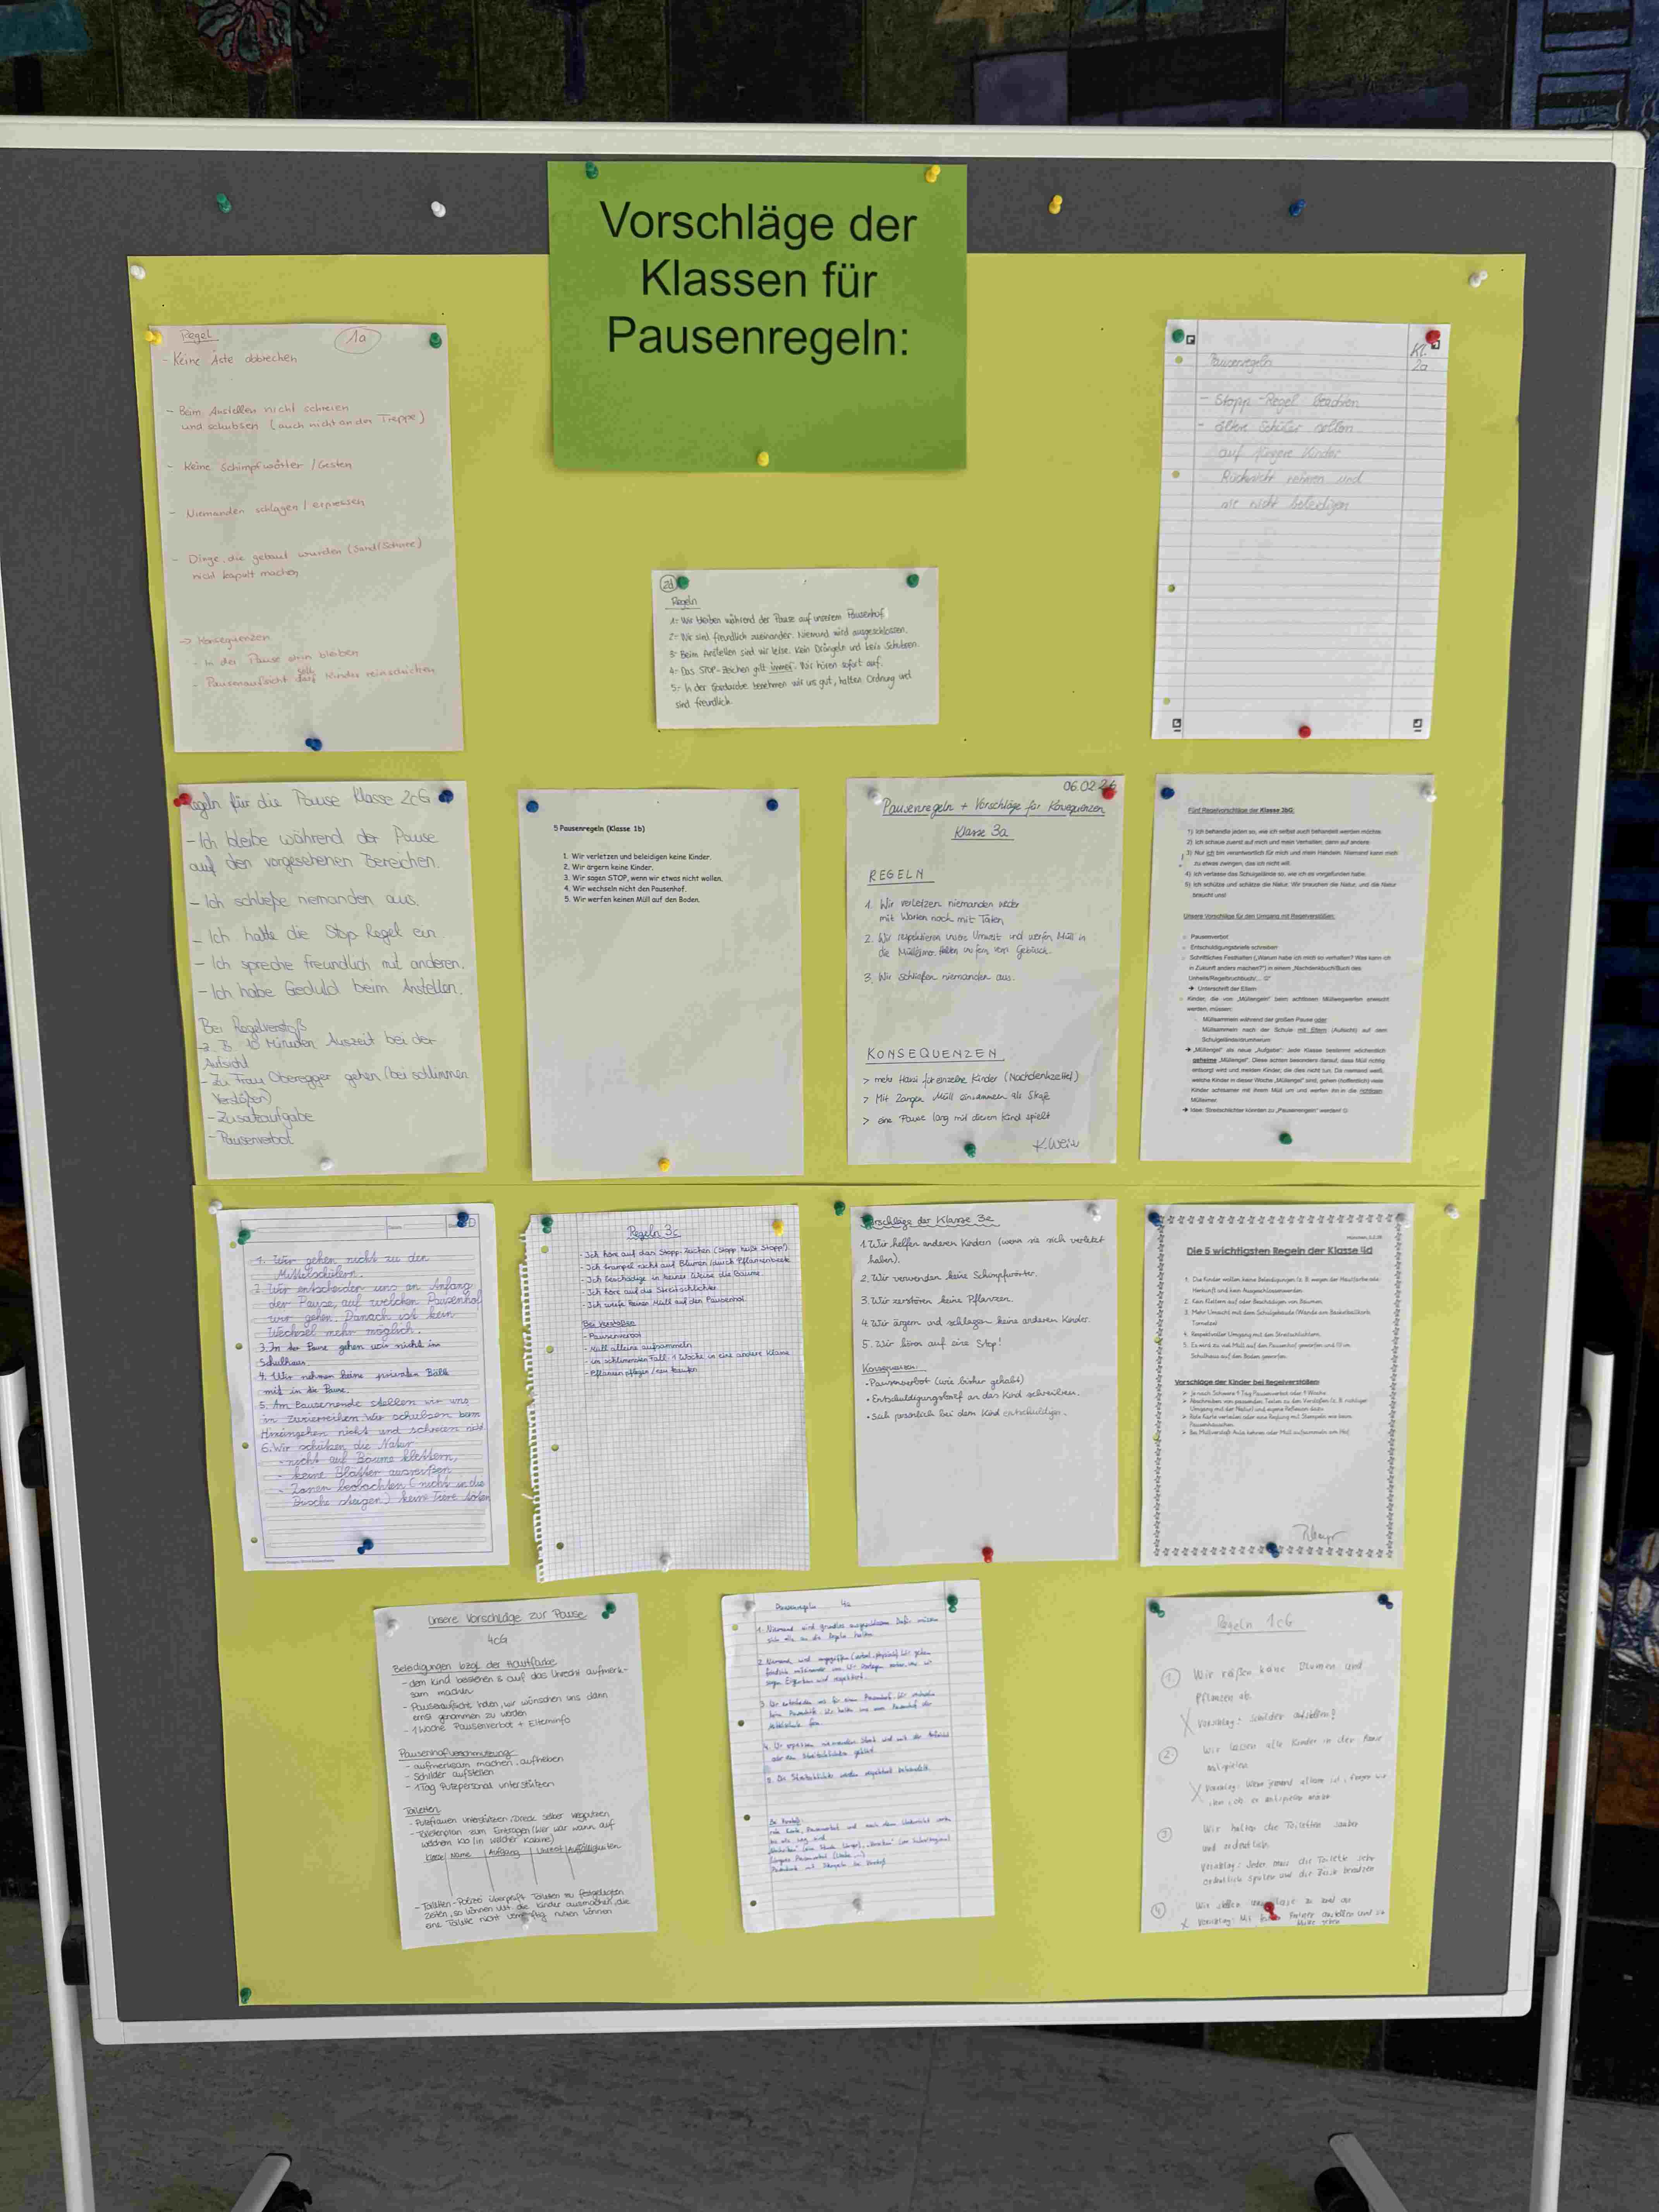 Vorschläge der
Klassen für
Pausenregeln:
Regel
1a
- Keine Äste abbrechen
- Beim Anstellen nicht schreien
und schubsen (auch nicht an der Treppe)
- Keine Schimpfwörter / Gesten
- Niemanden schlagen / erpressen
- Dinge, die gebaut wurden (Sand/Schnee)
nicht kaputt machen
-> Konsequenzen
- In der Pause drin bleiben
- Pausenaufsicht Kinder reinschicken
2d
Regeln
1.- Wir bleiben während der Pause auf unserem Pausenhof.
2.- Wir sind freundlich zueinander. Niemand wird ausgeschlossen.
3.- Beim Anstellen sind wir leise. Kein Drängeln und kein Schubsen.
4.- Das STOP-Zeichen gilt immer. Wir hören sofort auf.
5.- In der Garderobe benehmen wir uns gut, halten Ordnung und
sind freundlich.
Kl.
2a
Pausenregeln
- Stopp-Regel beachten
- ältere Schüler sollen
auf jüngere Kinder
Rücksicht nehmen und
sie nicht beleidigen
Regeln für die Pause Klasse 2cG
- Ich bleibe während der Pause
auf den vorgesehenen Bereichen.
- Ich schließe niemanden aus.
- Ich halte die Stop Regel ein
- Ich spreche freundlich mit anderen.
- Ich habe Geduld beim Anstellen.
Bei Regelverstoß
10 Minuten Auszeit bei der
Aufsicht
- Zu Frau Oberegger gehen (bei schlimmen
Verstößen)
- Zusatzaufgabe
- Pausenverbot
5 Pausenregeln (Klasse 1b)
1. Wir verletzen und beleidigen keine Kinder.
2. Wir ärgern keine Kinder.
3. Wir sagen STOP, wenn wir etwas nicht wollen.
4. Wir wechseln nicht den Pausenhof.
5. Wir werfen keinen Müll auf den Boden.
06.02.26
Pausenregeln + Vorschläge für Konsequenzen
Klasse 3a
REGELN
1. Wir verletzen niemanden weder
mit Worten noch mit Taten.
2. Wir respektieren unsere Umwelt und werfen Müll in
die Mülleimer. Halten uns fern vom Gebüsch.
3. Wir schließen niemanden aus.
KONSEQUENZEN
> mehr Hausi für einzelne Kinder (Nachdenkzettel)
> Mit Zangen Müll einsammeln als Strafe
> eine Pause lang mit diesem Kind spielt
K.Wein
Fünf Regelvorschläge der Klasse 3bG:
1) Ich behandle jeden so, wie ich selbst auch behandelt werden möchte.
2) Ich schaue zuerst auf mich und mein Verhalten, dann auf andere.
3) Nur ich bin verantwortlich für mich und mein Handeln. Niemand kann mich
zu etwas zwingen, das ich nicht will.
4) Ich verlasse das Schulgelände so, wie ich es vorgefunden habe.
5) Ich schütze und schätze die Natur. Wir brauchen die Natur, und die Natur
braucht uns!
Unsere Vorschläge für den Umgang mit Regelverstößen:
Pausenverbot
Entschuldigungsbriefe schreiben
Schriftliches Festhalten („Warum habe ich mich so verhalten? Was kann ich
in Zukunft anders machen?") in einem „Nachdenkbuch/Buch des
Unheils/Regelbruchbuch/...
➔ Unterschrift der Eltern
Kinder, die von „Müllengeln" beim achtlosen Müllwegwerfen erwischt
werden, müssen:
Müllsammeln während der großen Pause oder
Müllsammeln nach der Schule mit Eltern (Aufsicht) auf dem
Schulgelände/drumherum
➔ „Müllengel" als neue „Aufgabe": Jede Klasse bestimmt wöchentlich
geheime „Müllengel". Diese achten besonders darauf, dass Müll richtig
entsorgt wird und melden Kinder, die dies nicht tun. Da niemand weiß,
welche Kinder in dieser Woche „Müllengel" sind, gehen (hoffentlich) viele
Kinder achtsamer mit ihrem Müll um und werfen ihn in die richtigen
Mülleimer.
➔ Idee: Streitschlichter könnten zu „Pausenengeln" werden!
Datum
1. Wir gehen nicht zu den
Mittelschülern.
2. Wir entscheiden uns am Anfang
der Pause, auf welchen Pausenhof
wir gehen. Danach ist kein
Wechsel mehr möglich.
3. In der Pause gehen wir nicht im
Schulhaus.
4. Wir nehmen keine privaten Bälle
mit in die Pause.
5. Am Pausenende stellen wir uns
in Zweierreihen. Wir schubsen beim
Hineingehen nicht und schreien nicht
6. Wir schützen die Natur
- nicht auf Bäume klettern,
- keine Blätter ausreißen
- Zonen beobachten (nicht in die
Büsche steigen) keine Tiere töten
Regeln 3c
- Ich höre auf das Stopp-Zeichen (Stopp heißt Stopp!)
- Ich trample nicht auf Blumen/durch Pflanzenbeete
- Ich beschädige in keiner Weise die Bäume.
- Ich höre auf die Streitschlichter.
- Ich werfe keinen Müll auf den Pausenhof.
Bei Verstößen
- Pausenverbot
- Müll alleine aufsammeln
- im schlimmsten Fall: 1 Woche in eine andere Klasse
- Pflanzen pflegen / neu kaufen
Vorschläge der Klasse 3e
1. Wir helfen anderen Kindern (wenn sie sich verletzt
haben).
2. Wir verwenden keine Schimpfwörter.
3. Wir zerstören keine Pflanzen.
4. Wir ärgern und schlagen keine anderen Kinder.
5. Wir hören auf eine Stop!
Konsequenzen:
• Pausenverbot (wie bisher gehabt)
• Entschuldigungsbrief an das Kind schreiben.
• Sich persönlich bei dem Kind entschuldigen.
Die 5 wichtigsten Regeln der Klasse 4d
1. Die Kinder wollen keine Beleidigungen (z. B. wegen der Hautfarbe oder
Herkunft und kein Ausgeschlossenwerden.
2. Kein Klettern auf oder Beschädigen von Bäumen.
3. Mehr Umsicht mit dem Schulgebäude (Wände am Basketballkorb,
Tornetze)
4. Respektvoller Umgang mit den Streitschlichtern.
5. Es wird zu viel Müll auf den Pausenhof geworfen und im
Schulhaus auf den Boden geworfen.
Vorschläge der Kinder bei Regelverstößen:
➢ Je nach Schwere 1 Tag Pausenverbot oder 1 Woche
➢ Abschreiben von passenden Texten zu den Verstößen (z. B. richtiger
Umgang mit der Natur) und eigene Reflexion dazu
➢ Rote Karte verteilen oder eine Regelung mit Stempeln wie beim
Pausenhäuschen.
➢ Bei Müllverstoß Aula kehren oder Müll aufsammeln am Hof
Unsere Vorschläge zur Pause
4cG
Beleidigungen bzgl. der Hautfarbe
- dem Kind beistehen & auf das Unrecht aufmerk-
sam machen
- Pausenaufsicht holen, wir wünschen uns dann
ernst genommen zu werden
- 1 Woche Pausenverbot + Elterninfo
Pausenhofverschmutzung
- aufmerksam machen, aufheben
- Schilder aufstellen
- 1 Tag Putzpersonal unterstützen
Toiletten
- Putzfrauen unterstützen, Dreck selber wegputzen
- Toilettenplan zum Eintragen (Wer war wann auf
welchem Klo (in welcher Kabine)
Klasse Name Aufgang Uhrzeit Auffälligkeiten
- Toiletten-Polizei überprüft Toiletten zu festgelegten
Zeiten, so können wir die Kinder ausmachen, die
eine Toilette nicht vernünftig nutzen können
Pausenregeln
1. Niemand wird grundlos ausgeschlossen. Dafür müssen
sich alle an die Regeln halten.
2. Niemand wird angegriffen (verbal, physisch). Wir gehen
3. Wir entscheiden uns für einen Pausenhof. Wir
5. Die Streitschlichter werden respektvoll behandelt.
Regeln 1cG
1. Wir reißen keine Blumen und
Pflanzen ab.
Vorschlag: Schilder aufstellen?
2. Wir lassen alle Kinder in der Pause
mitspielen
Vorschlag: Wenn jemand allein ist, fragen wir
ihn, ob er mitspielen möchte
3. Wir halten die Toiletten sauber
und ordentlich.
Vorschlag: Jeder muss die Toilette sehr
ordentlich spülen und die Bürste benutzen
4.